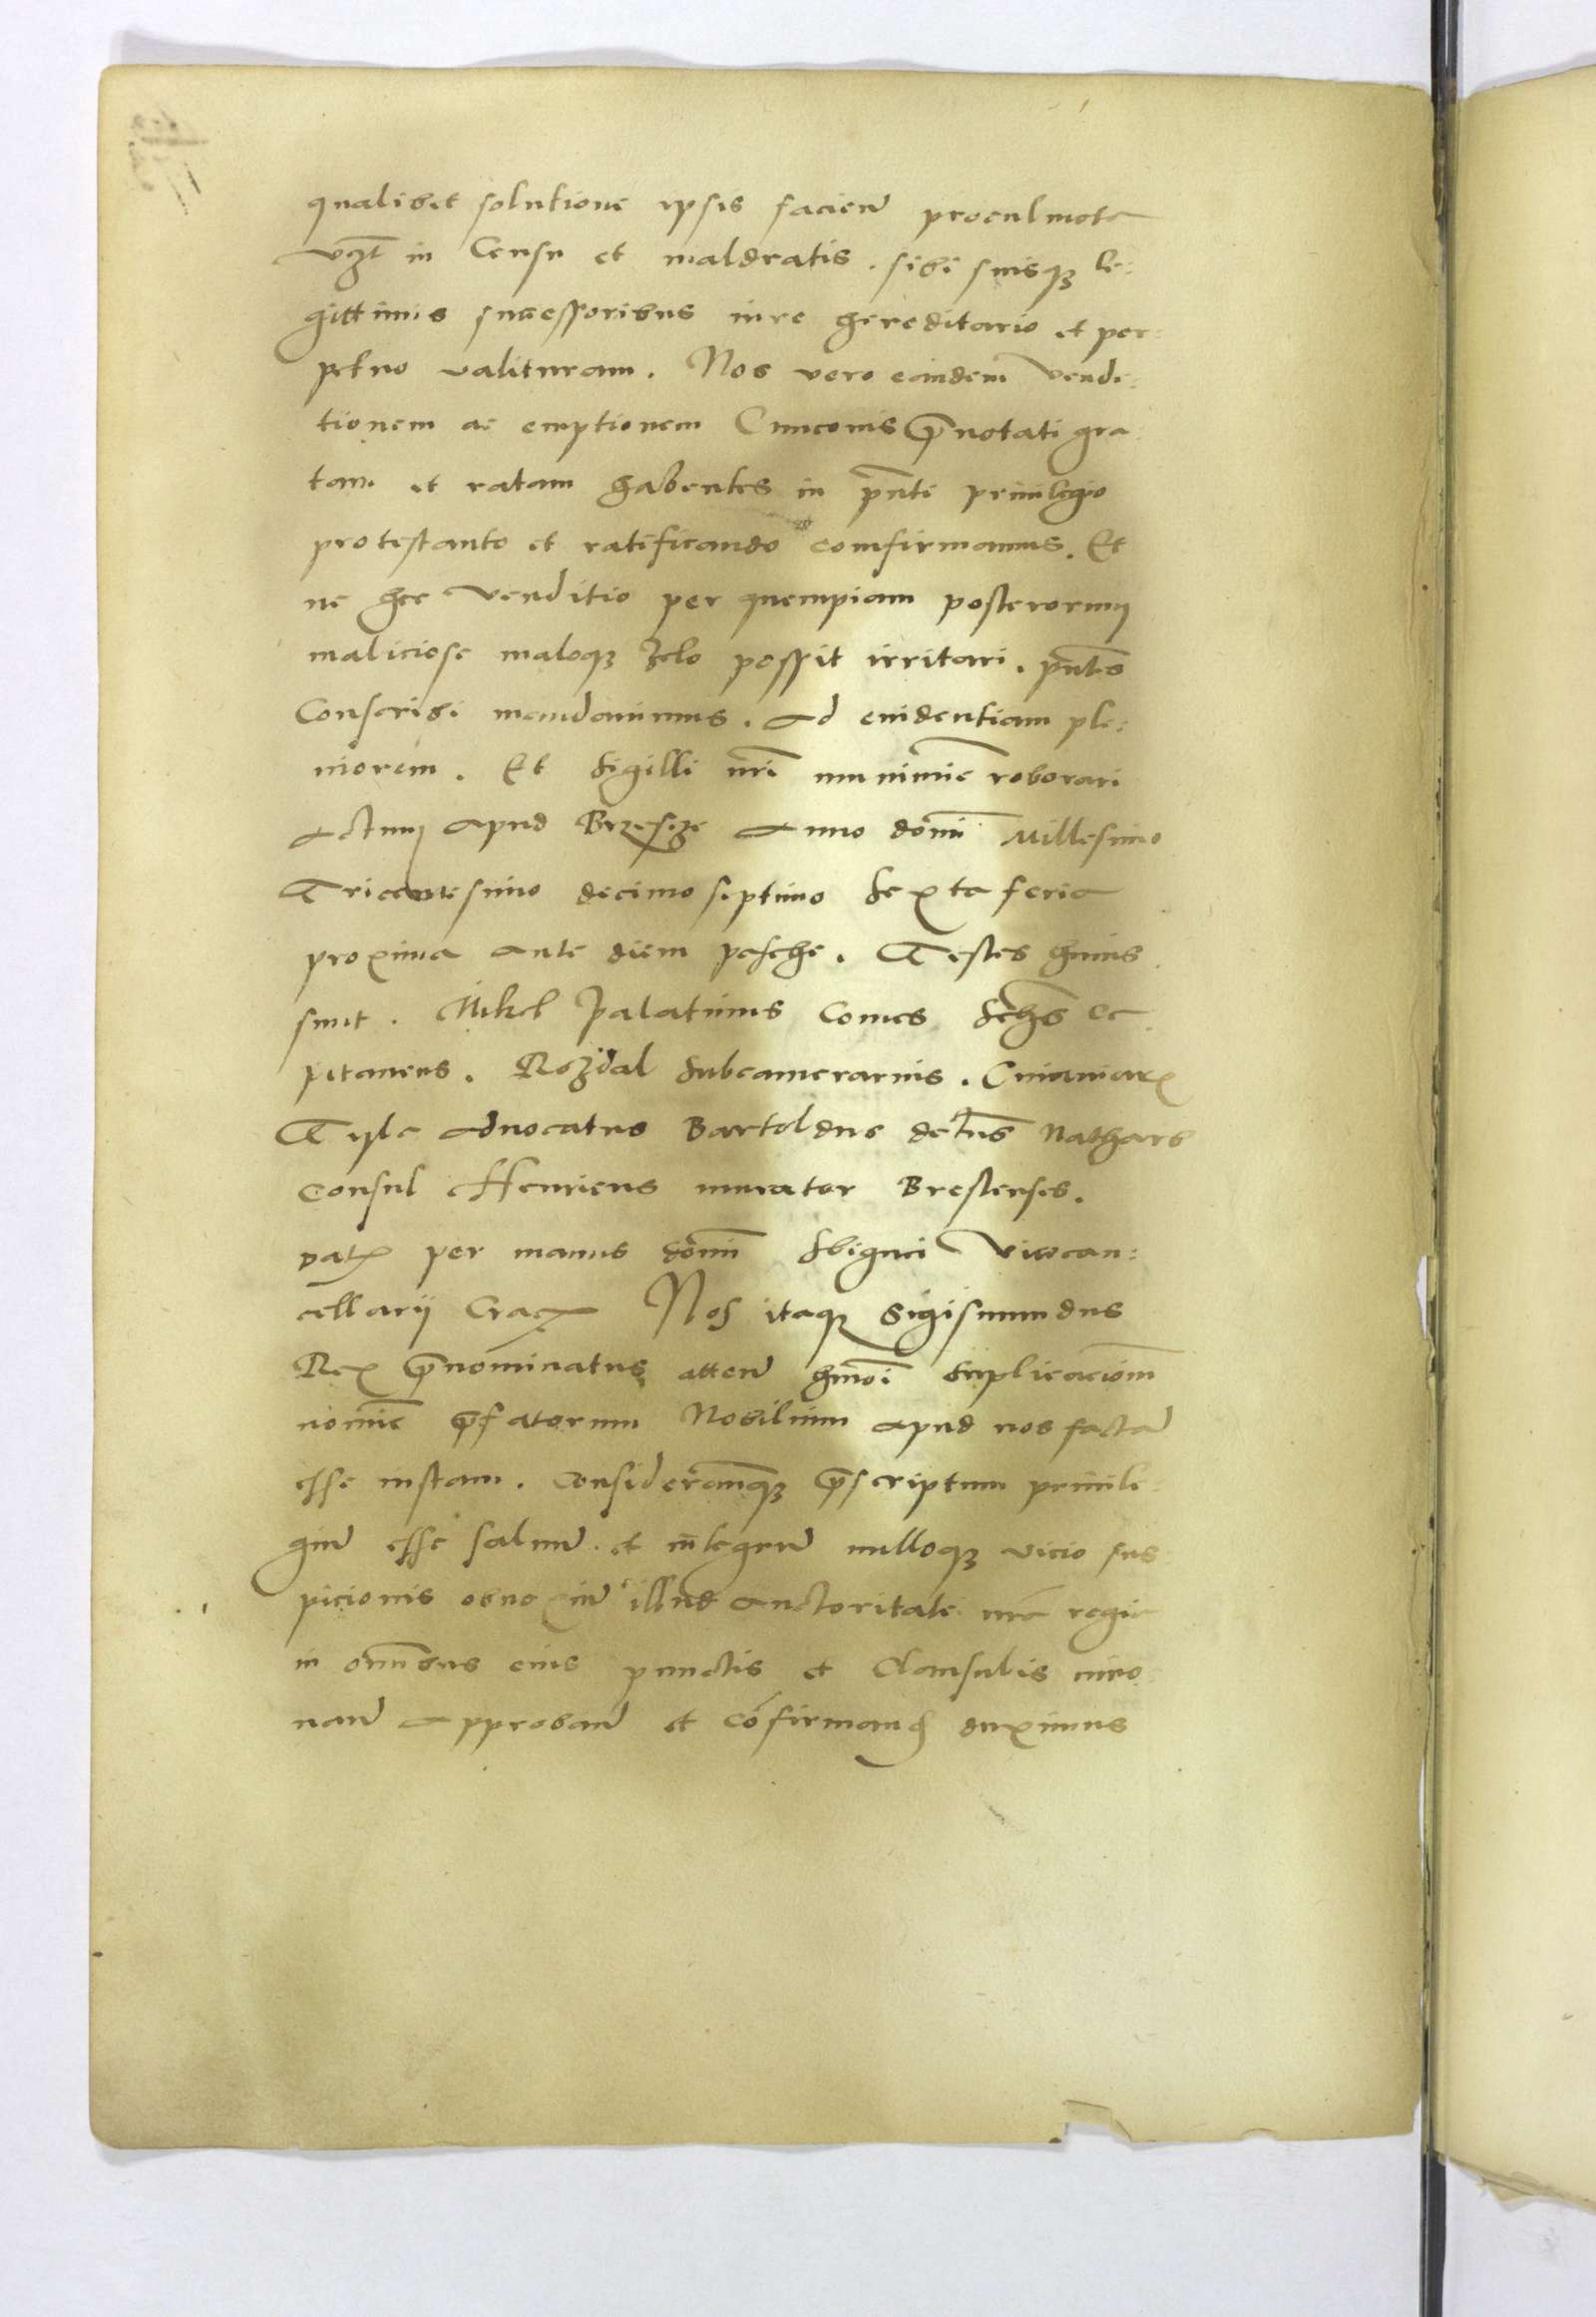 qualibet solutione ipsis faciend procul mota
vczt in Censu et maldratis . sibi suisq3 le:
gittimis successoribus iure hereditario et per:
petuo valituram . Nos vero eandem vendi:
tionem ac emptionem Cunconis p̄notati gra
tam et ratam habentes in p̄nti priuilegio
protestanto et ratificando confirmamus . Et
ne hec venditio per quempiam posterorum
maliciose maloq3 zelo possit irritari . p̄ntes
Conscribi mandauimus . Ad euidentiam ple:
niorem . Et Sigilli nr̄i munimīe roborari
Actum apud Brzescze Anno domī Millesimo
Tricentesimo decimo septimo Sexta feria
proxima ante diem pasche . Testes huius
sunt . Mikel Palatinus Comes
pitaneus . Rozdal Subcamerarius .
Tyle Aduocatus Bartoldus Nathars
Consul Henricus murator Brestenses .
dat per manus domī Sbignei Vicecan:
cellarij Crac Nos itaq3 Sigismundus
Rex p̄nominatus atten hmōi Suplicacionm
nomīe p̄fatorum Nobilium apud nos factā
esse iustam . Considerantesq3 p̄scriptum priuile
giū esse saluū et integrū nulloq3 vicio sus
picionis obnoxiū illud Auctoritate nr̄a regia
in omībus eius punctis et Clausulis inno
uand Approband et cōfirmand duximus